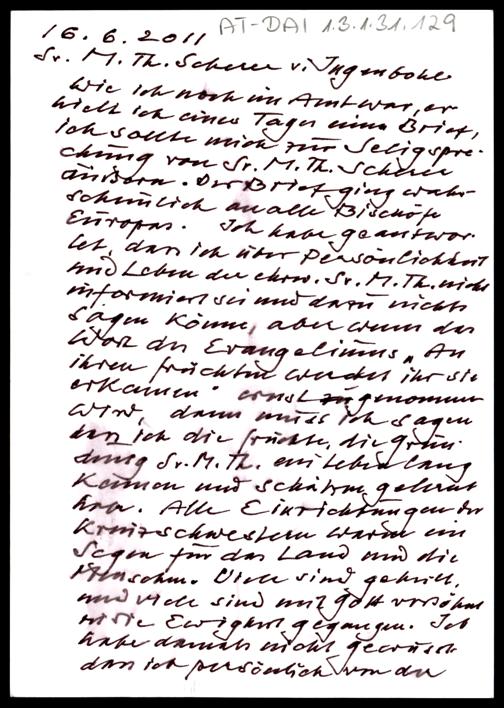 AT-DAI 1.3.1.31.129
16.6.2011
Sr. M. Th. Scherer v. Ingenbohl
Wie ich noch im Amt war, er-
hielt ich eines Tages einen Brief,
ich sollte mich zur Seligspre-
chung von Sr. M. Th. Scherer
äußern. Der Brief ging wahr-
scheinlich an alle Bischöfe
Europas. Ich habe geantwor-
tet, dass ich über Persönlichkeit
und Leben der ehrw. Sr. M. Th. nicht
informiert sei und dazu nichts
sagen könne, aber wenn das
Wort des Evangeliums „An
ihren Früchten werdet ihr sie
erkennen" ernst genommen
wird, dann muss ich sagen
dass ich die Früchte, die Grün-
dung Sr. M. Th. ein Leben lang
kennen und schätzen gelernt
habe. Alle Einrichtungen der
Kreuzschwestern waren ein
Segen für das Land und die
Menschen. Viele sind geheilt,
und viele sind mit Gott versöhnt
in die Ewigkeit gegangen. Ich
habe damals nicht gewusst
dass ich persönlich von der